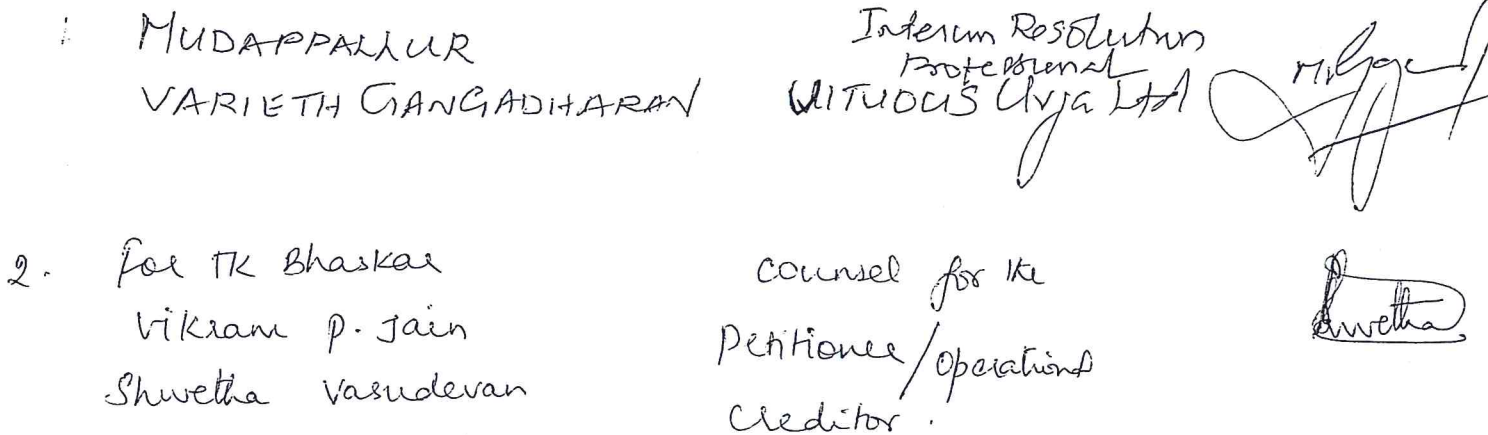 MUDAPPALLUR
VARIETH GANGADHARAN
Interim Resolution
Professional
VITUOUS Urja Ltd
2. for TK Bhaskar
Vikram P. Jain
Shwetha Vasudevan
counsel for the
Petitioner/Operational
Creditor.
Shwetha